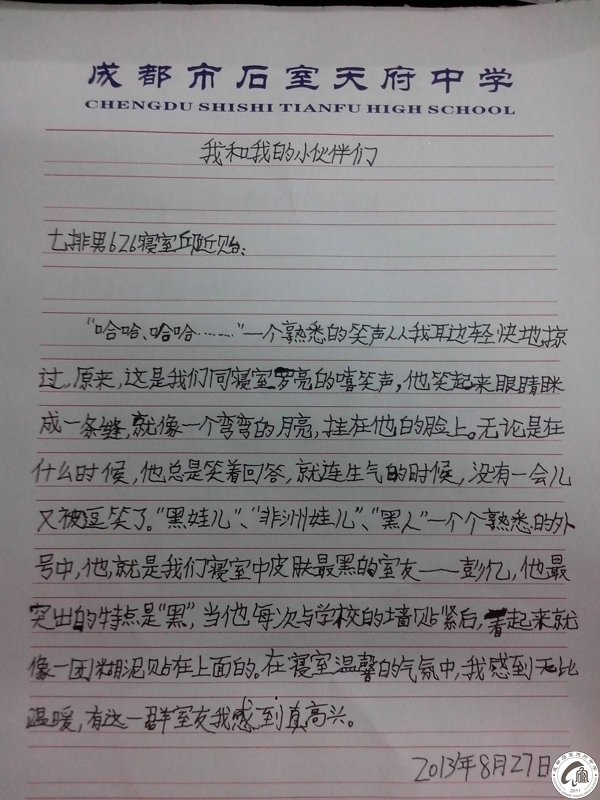 成都市石室天府中学
CHENGDU SHISHI TIANFU HIGH SCHOOL
我和我的小伙伴们
七排男626寝室邱近贻:
“哈哈、哈哈……”一个熟悉的笑声从我耳边轻快地掠
过,原来,这是我们同寝室罗亮的嘻笑声,他笑起来眼睛眯
成一条缝,就像一个弯弯的月亮,挂在他的脸上。无论是在
什么时候,他总是笑着回答,就连生气的时候,没有一会儿
又被逗笑了。“黑娃儿”、“非洲娃儿”、“黑人”一个个熟悉的外
号中,他,就是我们寝室中皮肤最黑的室友——彭忆,他最
突出的特点是“黑”,当他每次与学校的墙贴紧后,看起来就
像一团糊泥贴在上面的。在寝室温馨的气氛中,我感到无比
温暖,有这一群室友我感到真高兴。
2013年8月27日
2011